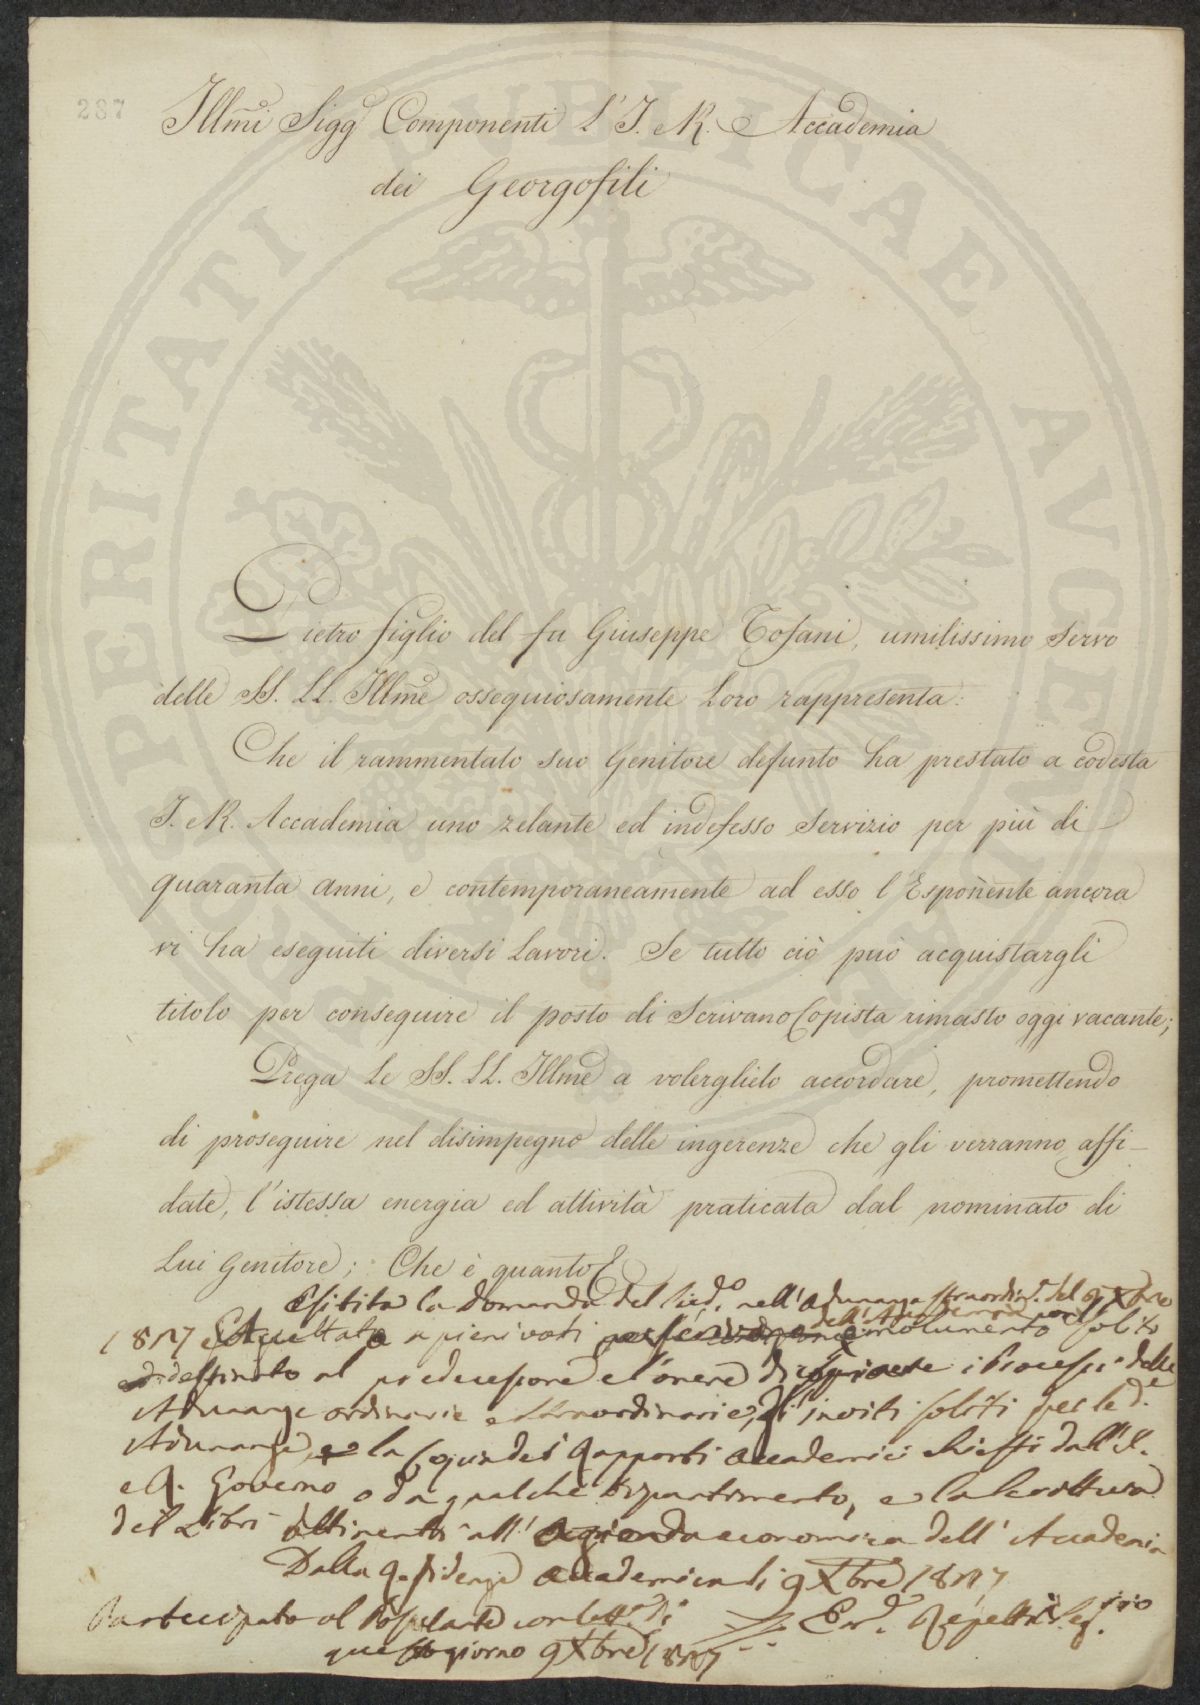 287
Illmi Sigg Componenti L'I. e R. Accademia
dei Georgofili
Pietro figlio del fu Giuseppe Tofani, umilissimo Servo
delle SS. LL. Illme ossequiosamente Loro rappresenta:
Che il rammentato suo Genitore defunto ha prestato a codesta
I. e R. Accademia uno zelante ed indefesso Servizio per più di
quaranta anni, e contemporaneamente ad esso l'Esponente ancora
vi ha eseguiti diversi Lavori. Se tutto ciò può acquistargli
titolo per conseguire il posto di Scrivano Copista rimasto oggi vacante;
Prega Le SS. LL. Illme a volerglielo accordare, promettendo
di proseguire nel disimpegno delle ingerenze che gli verranno affi-
date, l'istessa energia ed attività praticata dal nominato di
Lui Genitore; Che è quanto
Esibita la domanda del Sudo. nell'Adunanza straordina. del 9 Xbre
a pieni voti emolumento solito
destinato al predecessore e l'onere di copiare i Processi delle
Adunanze ordinarie e straordinarie, gl'inviti soliti per le de.
Adunanze, e la copia dei Rapporti Accademici chiesti dall'I.
e R. Governo o da qualche dipartimento, e la scrittura
dei Libri attinenti all'azienda economica dell'Accademia
Dalla Residenza Accademica li 9 Xbre
Partecipato al Postulante con lettera di Em. Repetti Segrio
questo giorno 9 Xbre
SPERITATI PUBLICAE AUGENDAE